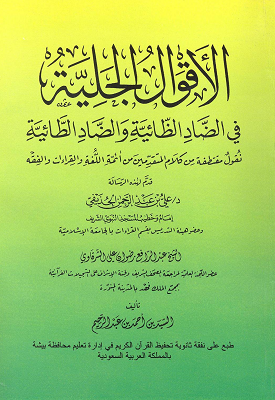 الأقوال الجلية
في الضاد الظائية والضاد الطائية
نقول مقتطفة من كلام المتقدمين من أئمة اللغة والقراءات والفقه
قدم لهذه الرسالة
د/ علي بن عبد الرحمن الحذيفي
إمام وخطيب المسجد النبوي الشريف
وعضو هيئة التدريس بقسم القراءات بالجامعة الإسلامية
الشيخ عبد الرافع رضوان علي الشرقاوي
عضو اللجنة العلمية لمراجعة مصحف المدينة ولجنة الإشراف على التسجيلات القرآنية
بمجمع الملك فهد بالمدينة المنورة
تأليف
السيد بن أحمد بن عبد الرحيم
طبع على نفقة ثانوية تحفيظ القرآن الكريم في إدارة تعليم محافظة بيشة
بالمملكة العربية السعودية